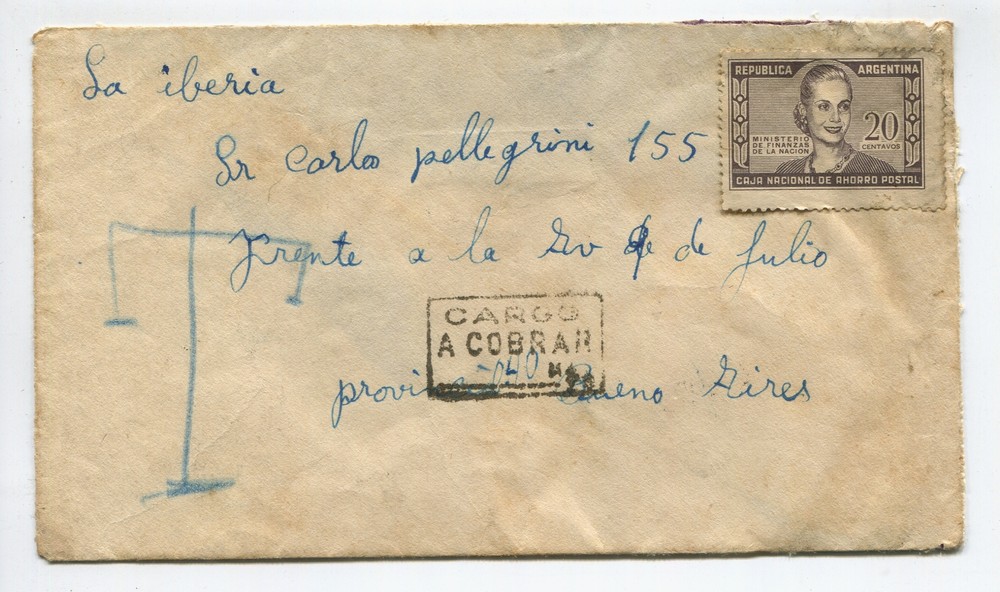 La iberia
REPUBLICA ARGENTINA
MINISTERIO
DE FINANZAS
DE LA NACION
20
CENTAVOS
CAJA NACIONAL DE AHORRO POSTAL
Sr Carlos pellegrini 155
Frente a la Av 9 de Julio
CARGO
A COBRAR
040
Bueno Aires